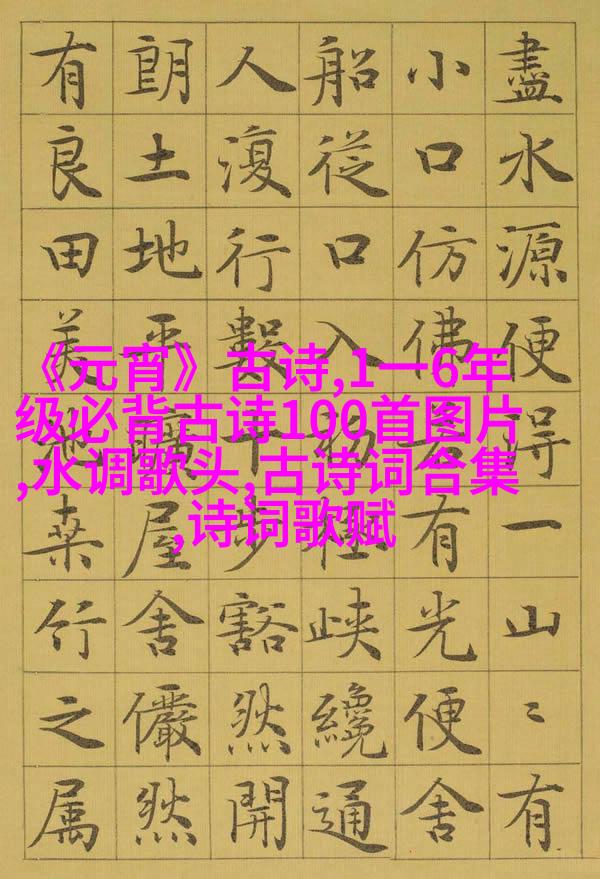 盡水源便得一山〻有
小口仿佛若有光便舍
船從口入初極峽纔通
人復行數十步豁然開
朗土地平曠屋舍儼然
有良田美池桑竹之属
《元宵》古诗,1一6年
级必背古诗100首图片
,水调歌头,古诗词合集
,诗词歌赋